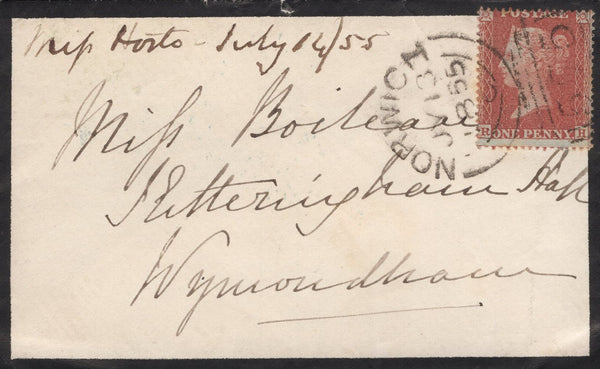 Miss Horto - July 14/55
POSTAGE
ONE PENNY
NORWICH
JY 13
Miss Boileau
Ketteringham Hall
Wymondham